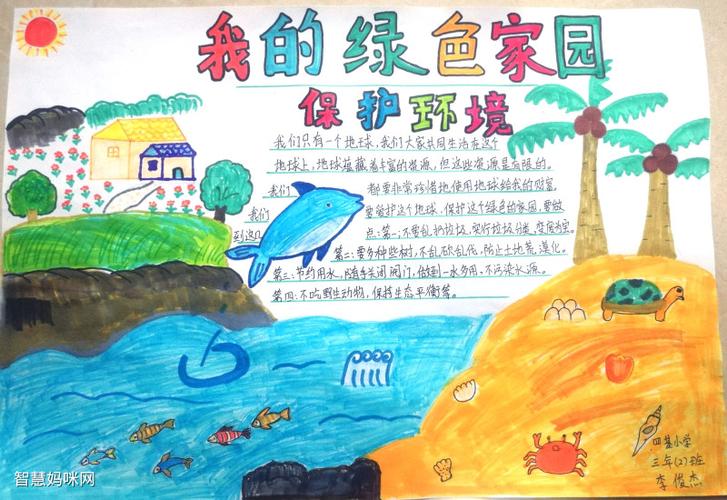 我的绿色家园
保护环境
我们只有一个地球，我们大家共同生活在这个
地球上，地球蕴藏着丰富的资源，但这些资源是有限的。
我们 都要非常珍惜地使用地球给我的财富，
我们 要爱护这个地球，保护这个绿色的家园，要做
到这几 点：第一：不要乱扔垃圾，实行垃圾分类，变废为宝。
第二：要多种些树，不乱砍乱伐，防止土地荒漠化。
第三：节约用水，随手关闭阀门，做到一水多用，不污染水源。
第四：不吃野生动物，保持生态平衡等。
四基小学
三年(2)班
李俊杰
智慧妈咪网